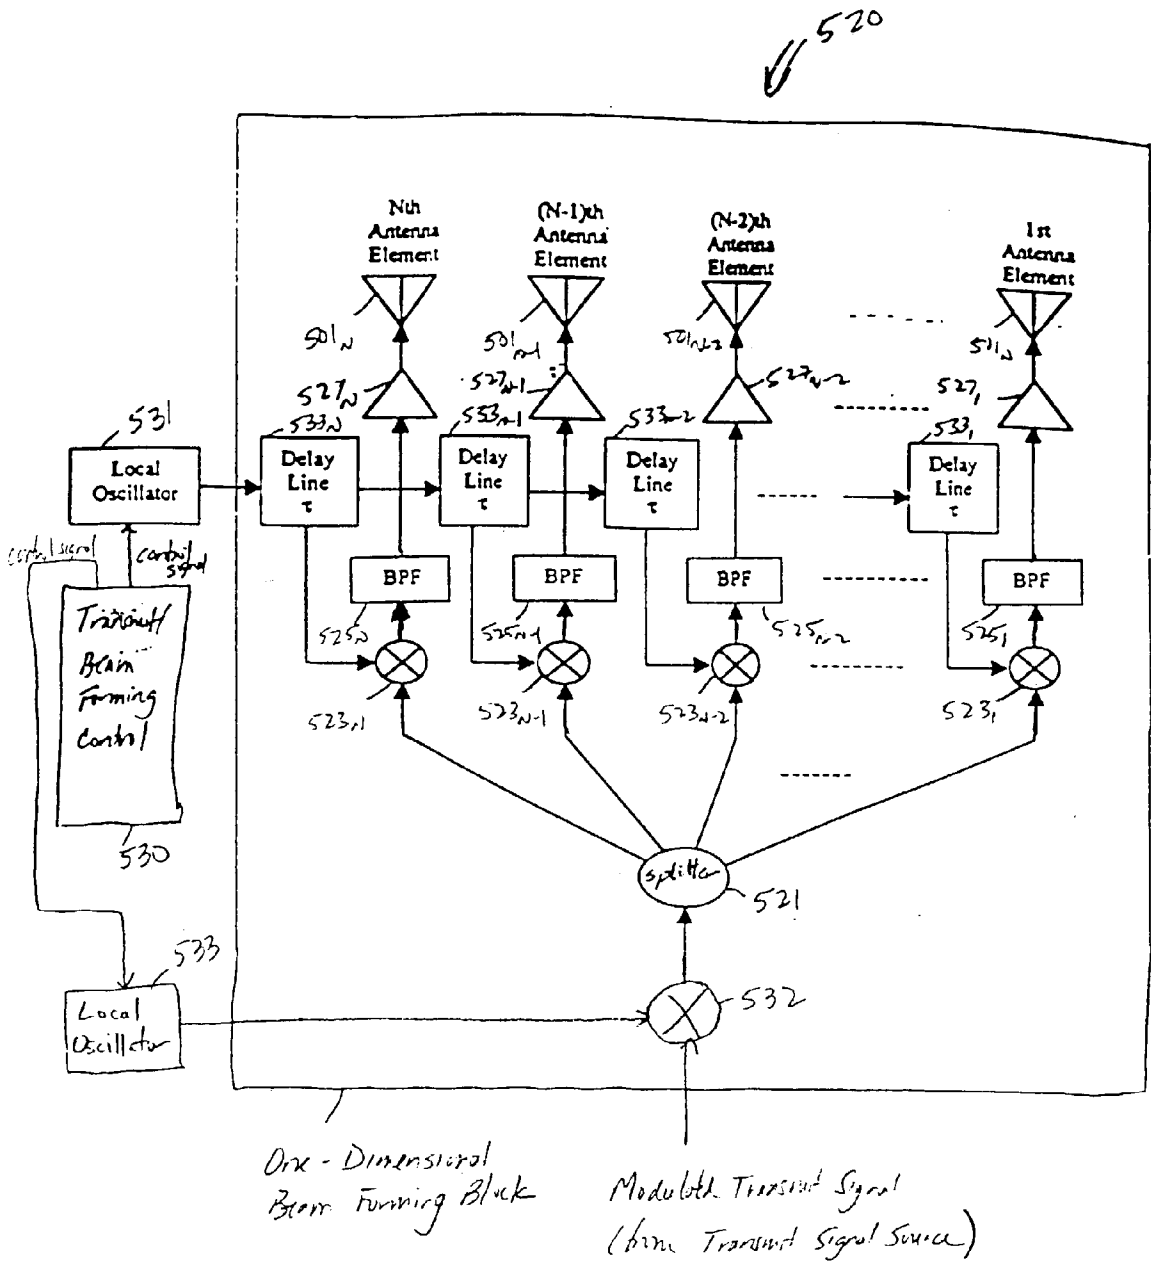 520
Nth
Antenna
Element
(N-1)th
Antenna
Element
(N-2)th
Antenna
Element
1st
Antenna
Element
501N
501N-1
501N-2
501N
527N
527N-1
527N-2
5271
531
533N
533N-1
533N-2
5331
Local
Oscillator
Delay
Line
τ
Delay
Line
τ
Delay
Line
τ
Delay
Line
τ
control signal
control
signal
BPF
BPF
BPF
BPF
525N
525N-1
525N-2
5251
Transmit
Beam
Forming
Control
523N-1
523N-1
523N-2
5231
530
splitter
521
533
Local
Oscillator
532
One-Dimensional
Beam Forming Block
Modulated Transmit Signal
(from Transmit Signal Source)